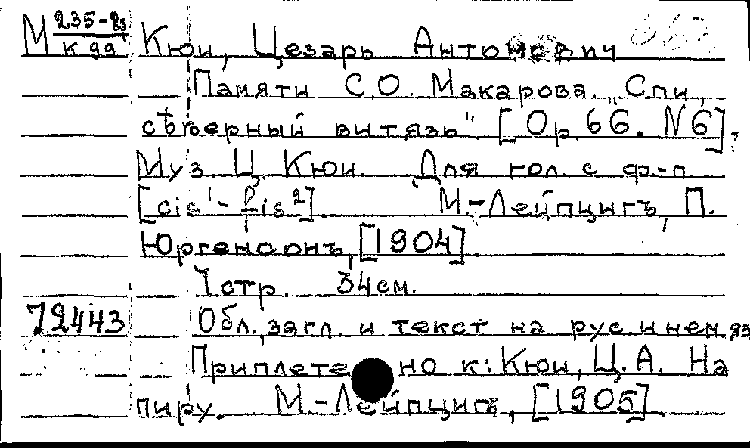 М 235-83 Кюи, Цезарь Антонович
К 99
Памяти С.О. Макарова. „Спи,
сѣверный витязь". [Ор. 66. №6].
Муз. Ц. Кюи. Для гол. с ф.-п.
[cis¹-fis²]. М.-Лейпцигъ, П.
Юргенсонъ, [1904].
7стр. 34см.
72443 Обл., загл. и текст на рус. и нем. яз
Приплетено к: Кюи, Ц.А. На
пиру. М.-Лейпцигъ, [1905].